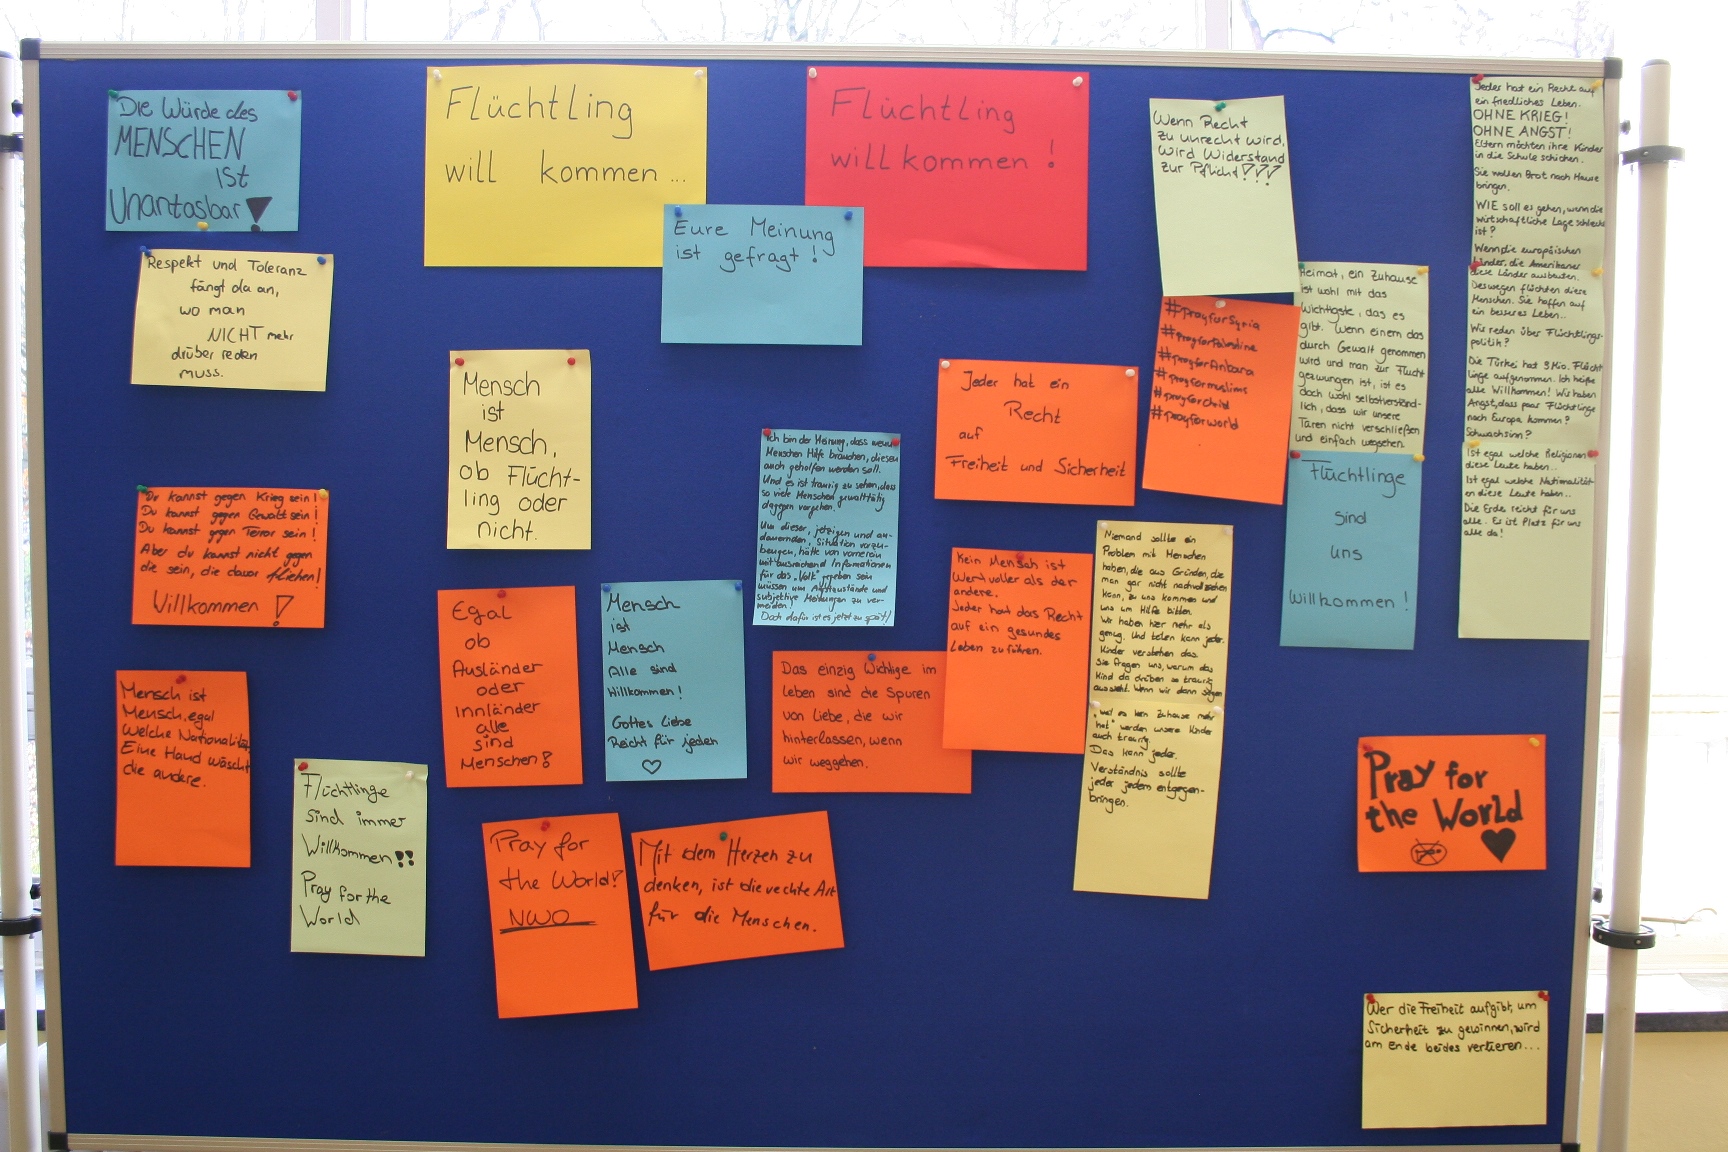 Die Würde des
MENSCHEN
ist
Unantasbar!
Respekt und Toleranz
fängt da an,
wo man
NICHT mehr
drüber reden
muss.
Du kannst gegen Krieg sein!
Du kannst gegen Gewalt sein!
Du kannst gegen Terror sein!
Aber du kannst nicht gegen
die sein, die davor fliehen!
Willkommen!
Mensch ist
Mensch, egal
Welche Nationalität
Eine Hand wäscht
die andere.
Flüchtlinge
sind immer
Willkommen!!
Pray for the
World
Flüchtling
will kommen ...
Flüchtling
willkommen!
Eure Meinung
ist gefragt!
Mensch
ist
Mensch,
ob Flücht-
ling oder
nicht.
Egal
ob
Ausländer
oder
Innländer
alle
sind
Menschen!
Mensch
ist
Mensch
Alle sind
Willkommen!
Gottes Liebe
Reicht für jeden
Pray for
the World!
NWO
Mit dem Herzen zu
denken, ist die rechte Art
für die Menschen.
Ich bin der Meinung, dass wenn
Menschen Hilfe brauchen, diesen
auch geholfen werden soll.
Und es ist traurig zu sehen, dass
so viele Menschen gewalttätig
dagegen vorgehen.
Um dieser, jetzigen und an-
dauernden, Situation vorzu-
beugen, hätte von vornerein
mit ausreichend Informationen
für das "Volk" gegeben sein
müssen um Angstzustände und
subjektive Meinungen zu ver-
meiden!
Doch dafür ist es jetzt zu spät!
Das einzig Wichtige im
Leben sind die Spuren
von Liebe, die wir
hinterlassen, wenn
wir weggehen.
Jeder hat ein
Recht
auf
Freiheit und Sicherheit
Kein Mensch ist
Wertvoller als der
andere.
Jeder hat das Recht
auf ein gesundes
Leben zu führen.
Wenn Recht
zu unrecht wird,
wird Widerstand
zur Pflicht!!!
#prayforSyria
#prayforPalestine
#prayforAnkara
#prayformuslims
#prayforchild
#prayforworld
Niemand sollte ein
Problem mit Menschen
haben, die aus Gründen, die
man gar nicht nachvollziehen
kann, zu uns kommen und
uns um Hilfe bitten.
Wir haben hier mehr als
genug. Und teilen kann jeder.
Kinder verstehen das.
Sie fragen uns, warum das
Kind da drüben so traurig
aussieht. Wenn wir dann sagen
"weil es kein Zuhause mehr
hat" werden unsere Kinder
auch traurig.
Das kann jeder.
Verständnis sollte
jeder jedem entgegen-
bringen.
Heimat, ein Zuhause
ist wohl mit das
Wichtigste, das es
gibt. Wenn einem das
durch Gewalt genommen
wird und man zur Flucht
gezwungen ist, ist es
doch wohl selbstverständ-
lich, dass wir unsere
Türen nicht verschließen
und einfach wegsehen.
Flüchtlinge
sind
uns
Willkommen!
Jeder hat ein Recht auf
ein friedliches Leben.
OHNE KRIEG!
OHNE ANGST!
Eltern möchten ihre Kinder
in die Schule schicken.
Sie wollen Brot nach Hause
bringen.
WIE soll es gehen, wenn die
wirtschaftliche Lage schlecht
ist?
Wenn die europäischen
Länder, die Amerikaner
diese Länder ausbeuten.
Deswegen flüchten diese
Menschen. Sie hoffen auf
ein besseres Leben..
Wir reden über Flüchtlings-
politik?
Die Türkei hat 3 Mio. Flücht
linge aufgenommen. Ich heiße
alle Willkommen! Wir haben
Angst, dass paar Flüchtlinge
nach Europa kommen?
Schwachsinn?
Ist egal welche Religionen
diese Leute haben..
Ist egal welche Nationalität
en diese Leute haben..
Die Erde reicht für uns
alle. Es ist Platz für uns
alle da!
Pray for
the World
Wer die Freiheit aufgibt, um
Sicherheit zu gewinnen, wird
am Ende beides verlieren...